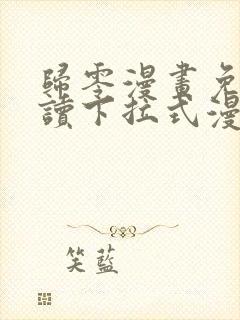 歸零漫畫免
讀下拉式漫
笑藍